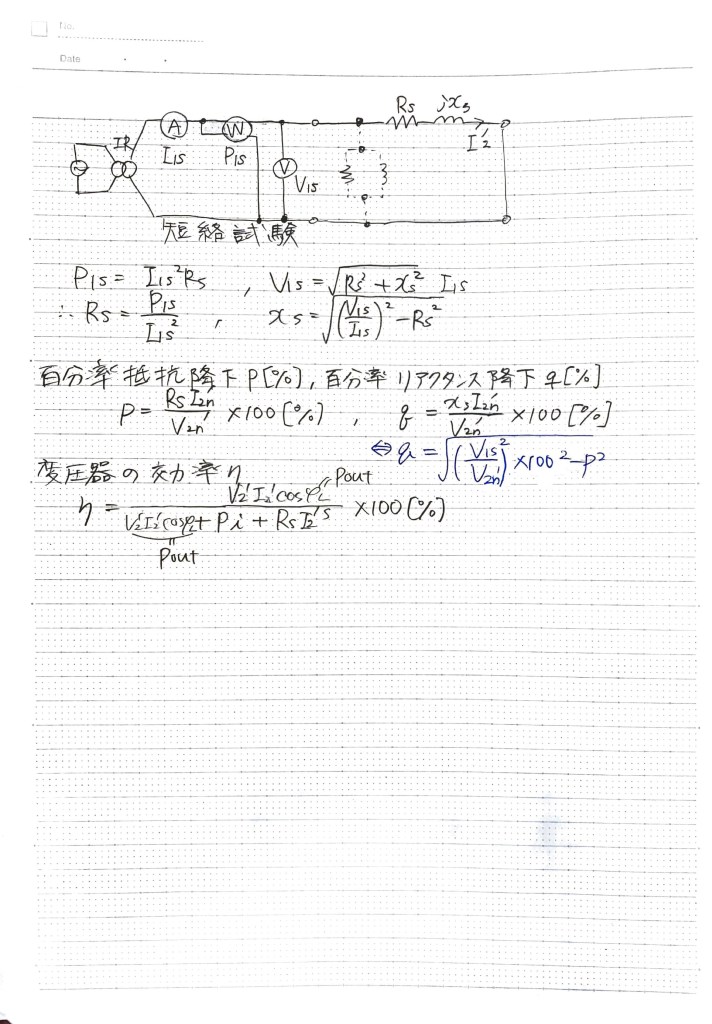 No.
Date
Rs jxs
IR A W I2'
I1s P1s V V1s
短絡試験
P1s = I1s²Rs , V1s = √(Rs² + xs²) I1s
∴ Rs = P1s/I1s² , xs = √((V1s/I1s)² - Rs²)
百分率抵抗降下 P[%], 百分率リアクタンス降下 q[%]
P = RsI2n'/V2n' ×100 [%] , q = xsI2n'/V2n' ×100 [%]
⇔ q = √((V1s/V2n')² ×100² - P²)
変圧器の効率 η
η = V2'I2'cosφL/(V2'I2'cosφL + Pi + RsI2'²) ×100 [%]
Pout
Pout